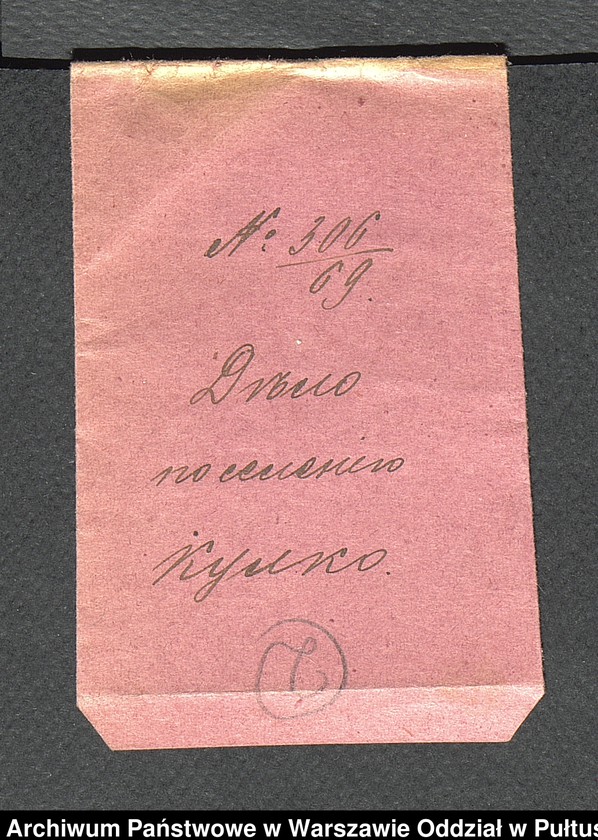 № 306
69.
Дѣло
по селенію
Кулко.
7
Archiwum Państwowe w Warszawie Oddział w Pułtus